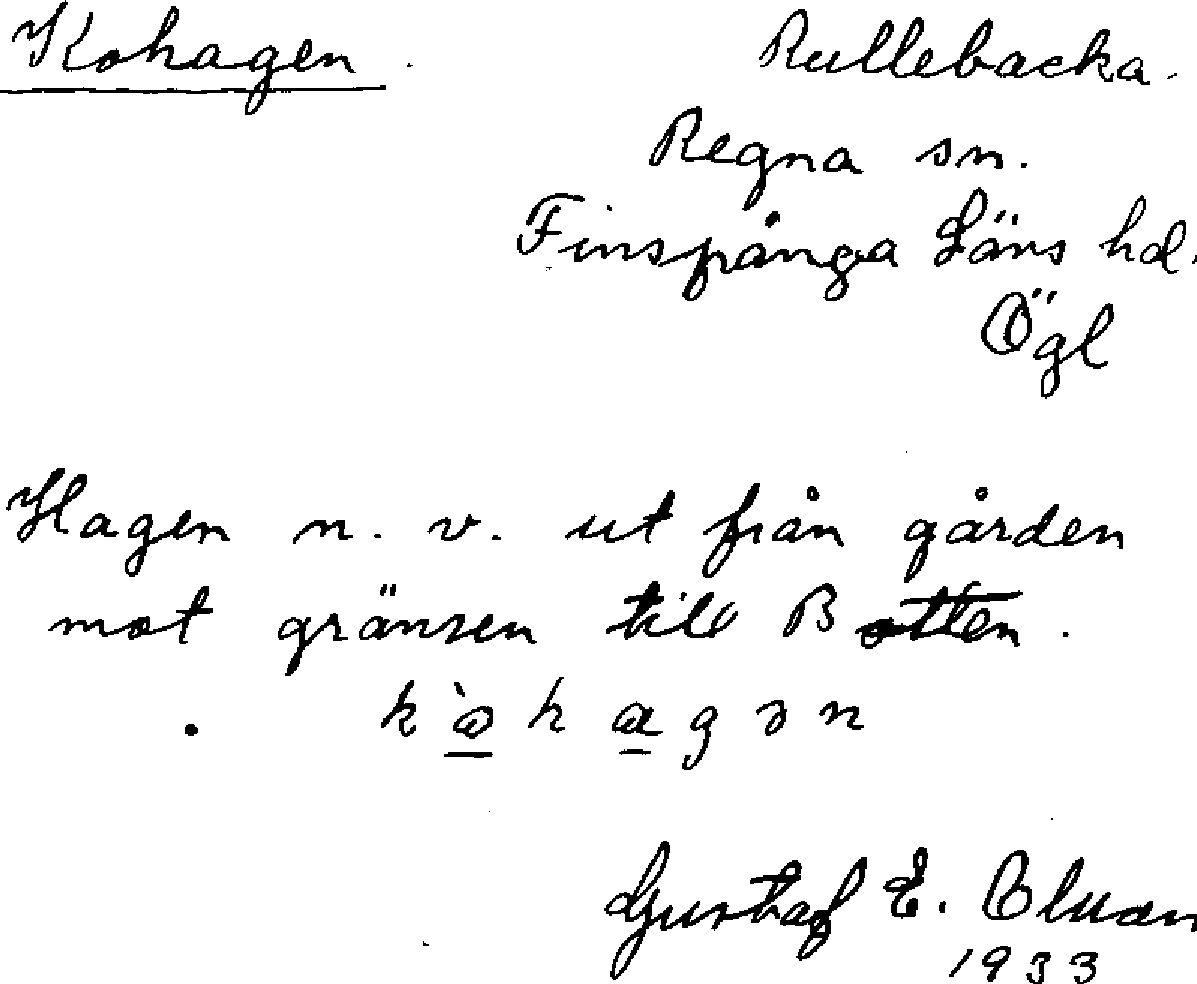 Kohagen. Rullebacka.
Regna sn.
Finspånga Läns hd.
Ögl
Hagen n. v. ut från gården
mot gränsen till Botten.
kòhagən
Gustaf E.
1933